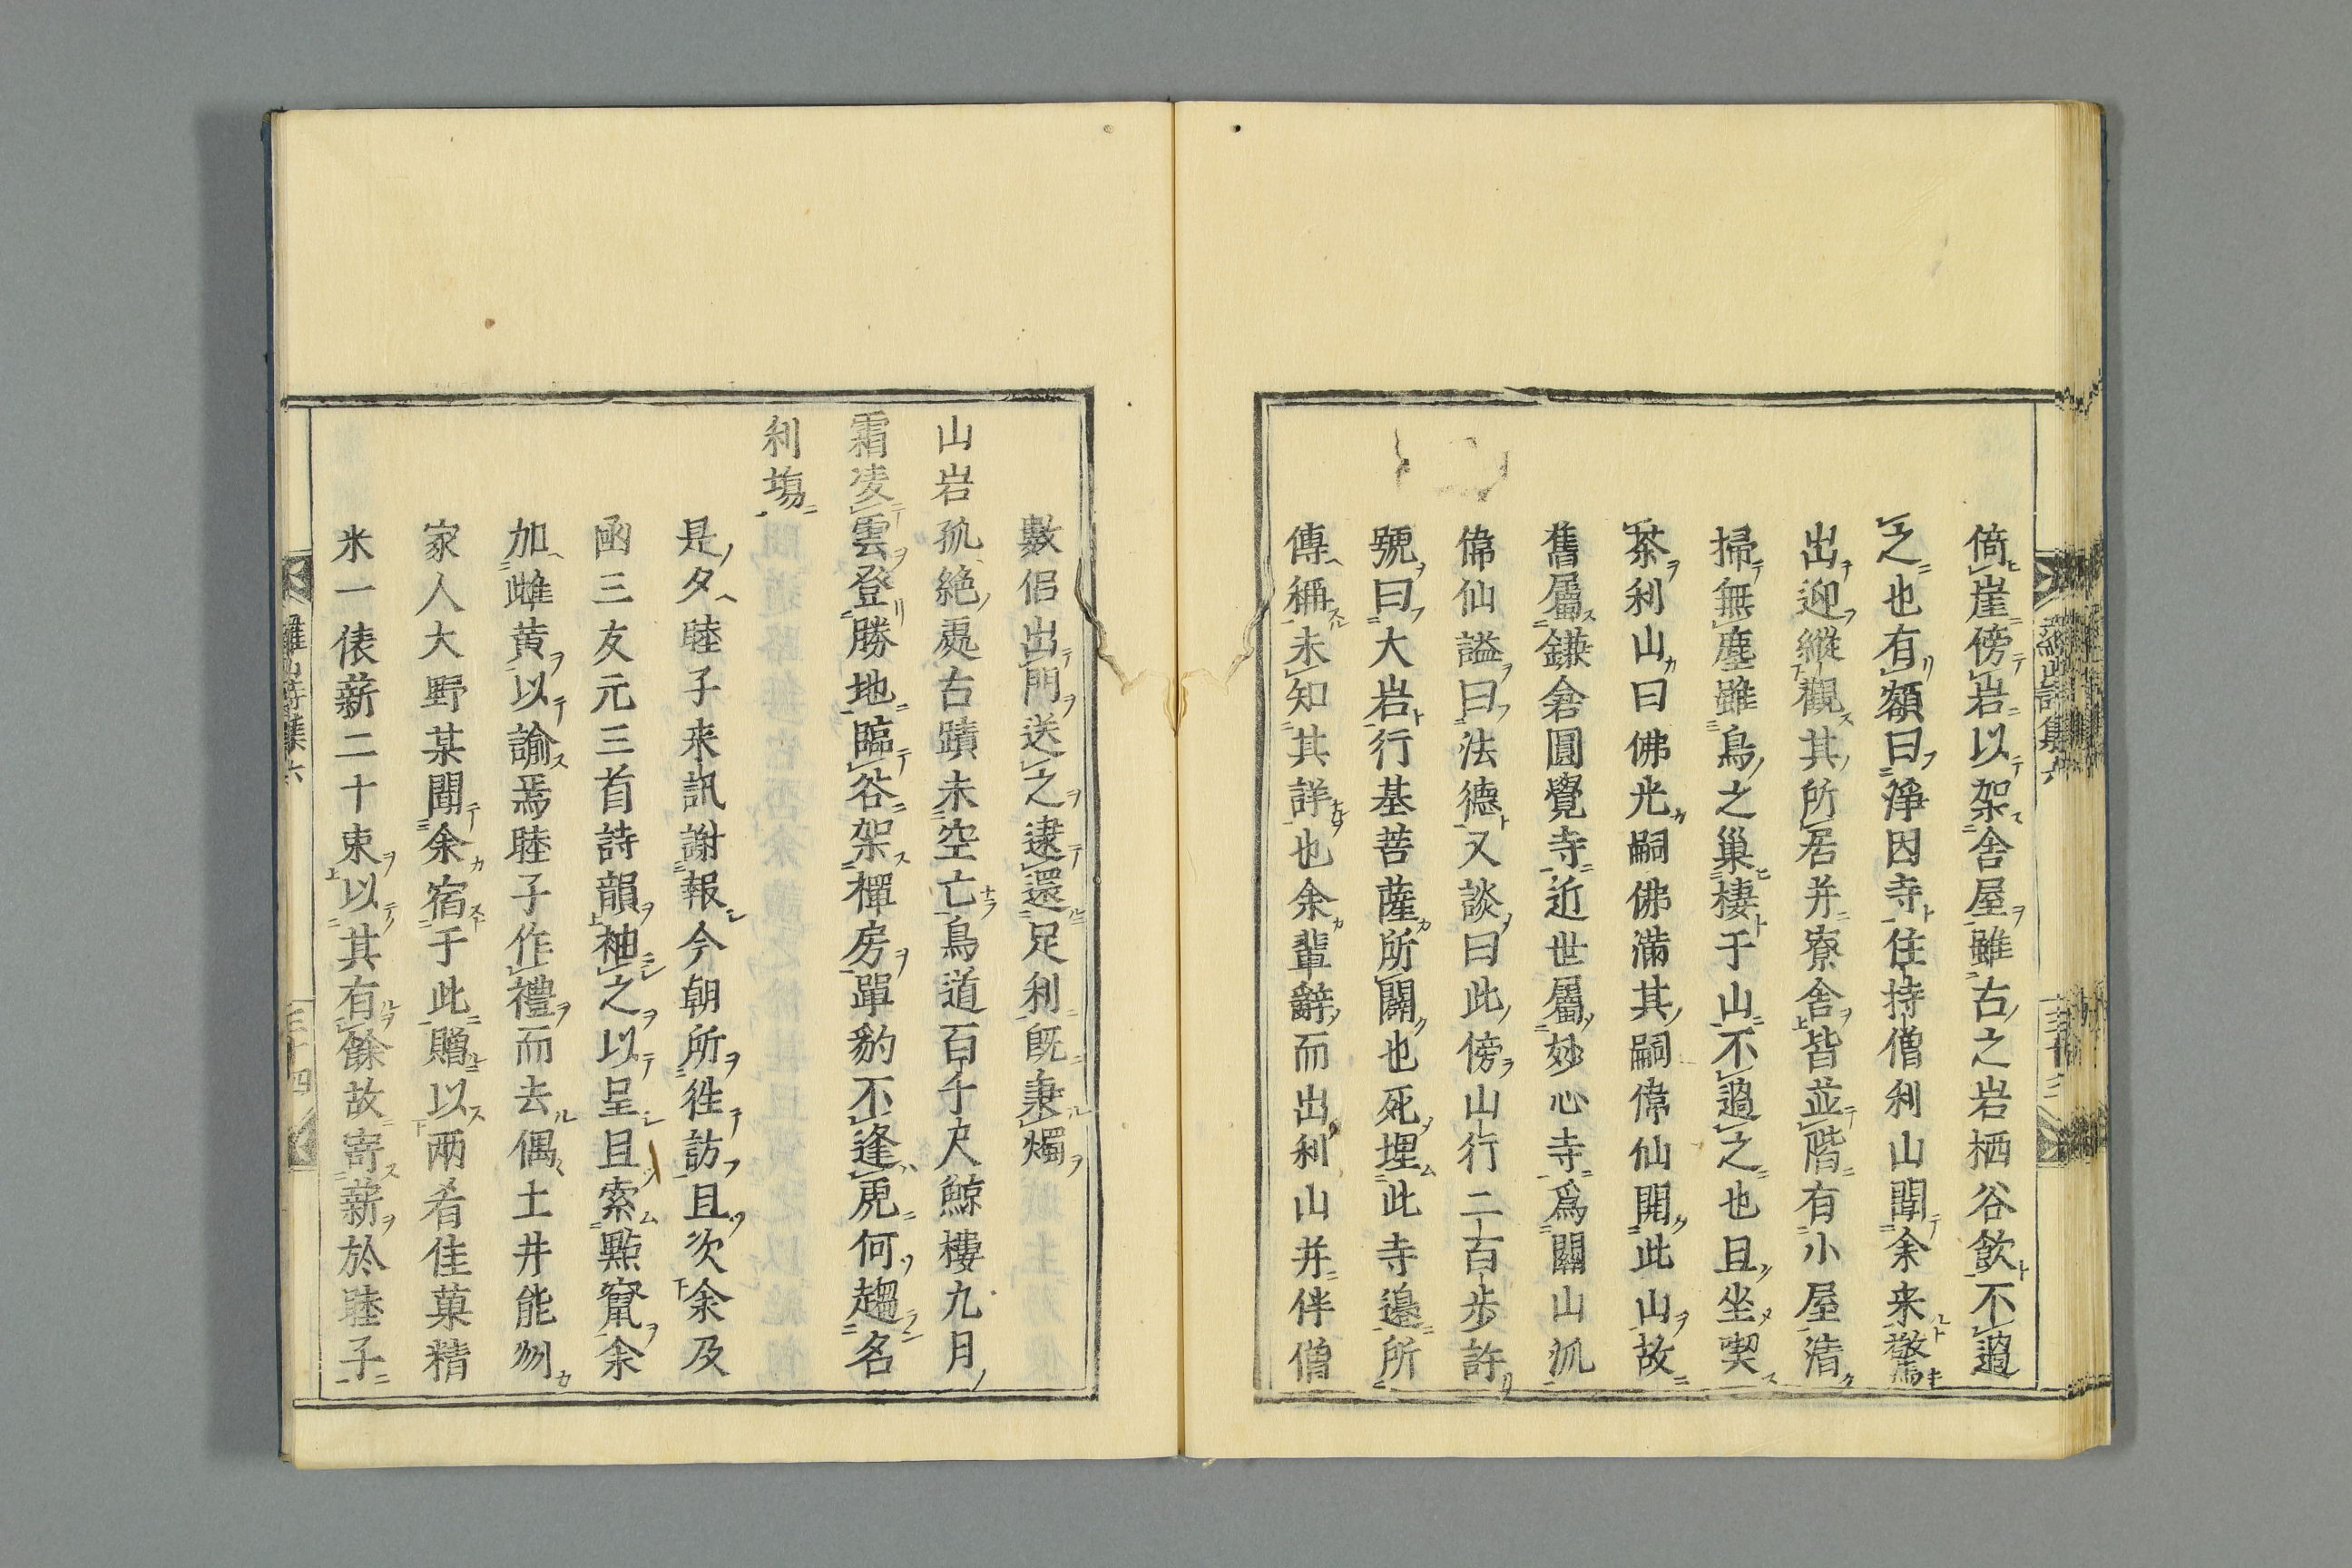 倚崖傍岩以架舎屋雖古之岩栖谷飲不過
之也有額曰淨因寺住持僧利山聞余来驚
出迎縱觀其所居并寮舎皆並階有小屋清
掃無塵雖鳥之巢棲于山不過之也且坐喫
茶利山曰佛光嗣佛滿其嗣偉仙開此山故
舊屬鎌倉圓覺寺近世屬妙心寺爲關山派
偉仙謚曰法德又談曰此傍山行二百步許
號曰大岩行基菩薩所闢也死埋此寺邊所
傳稱未知其詳也余輩辭而出利山并伴僧
數侶出門送之逮還足利既秉燭
山岩孤絶處古蹟未空亡鳥道百千尺鯨樓九月
霜凌雲登勝地臨谷架禪房單豹不逢虎何趨名
利塲
是夕睦子来訊謝報今朝所徃訪且次余及
函三友元三首詩韻袖之以呈且索點竄余
加雌黄以諭焉睦子作禮而去偶土井能州
家人大野某聞余宿于此贈以兩肴佳菓精
米一俵薪二十束以其有餘故寄薪於睦子
羅山詩集六
三十四